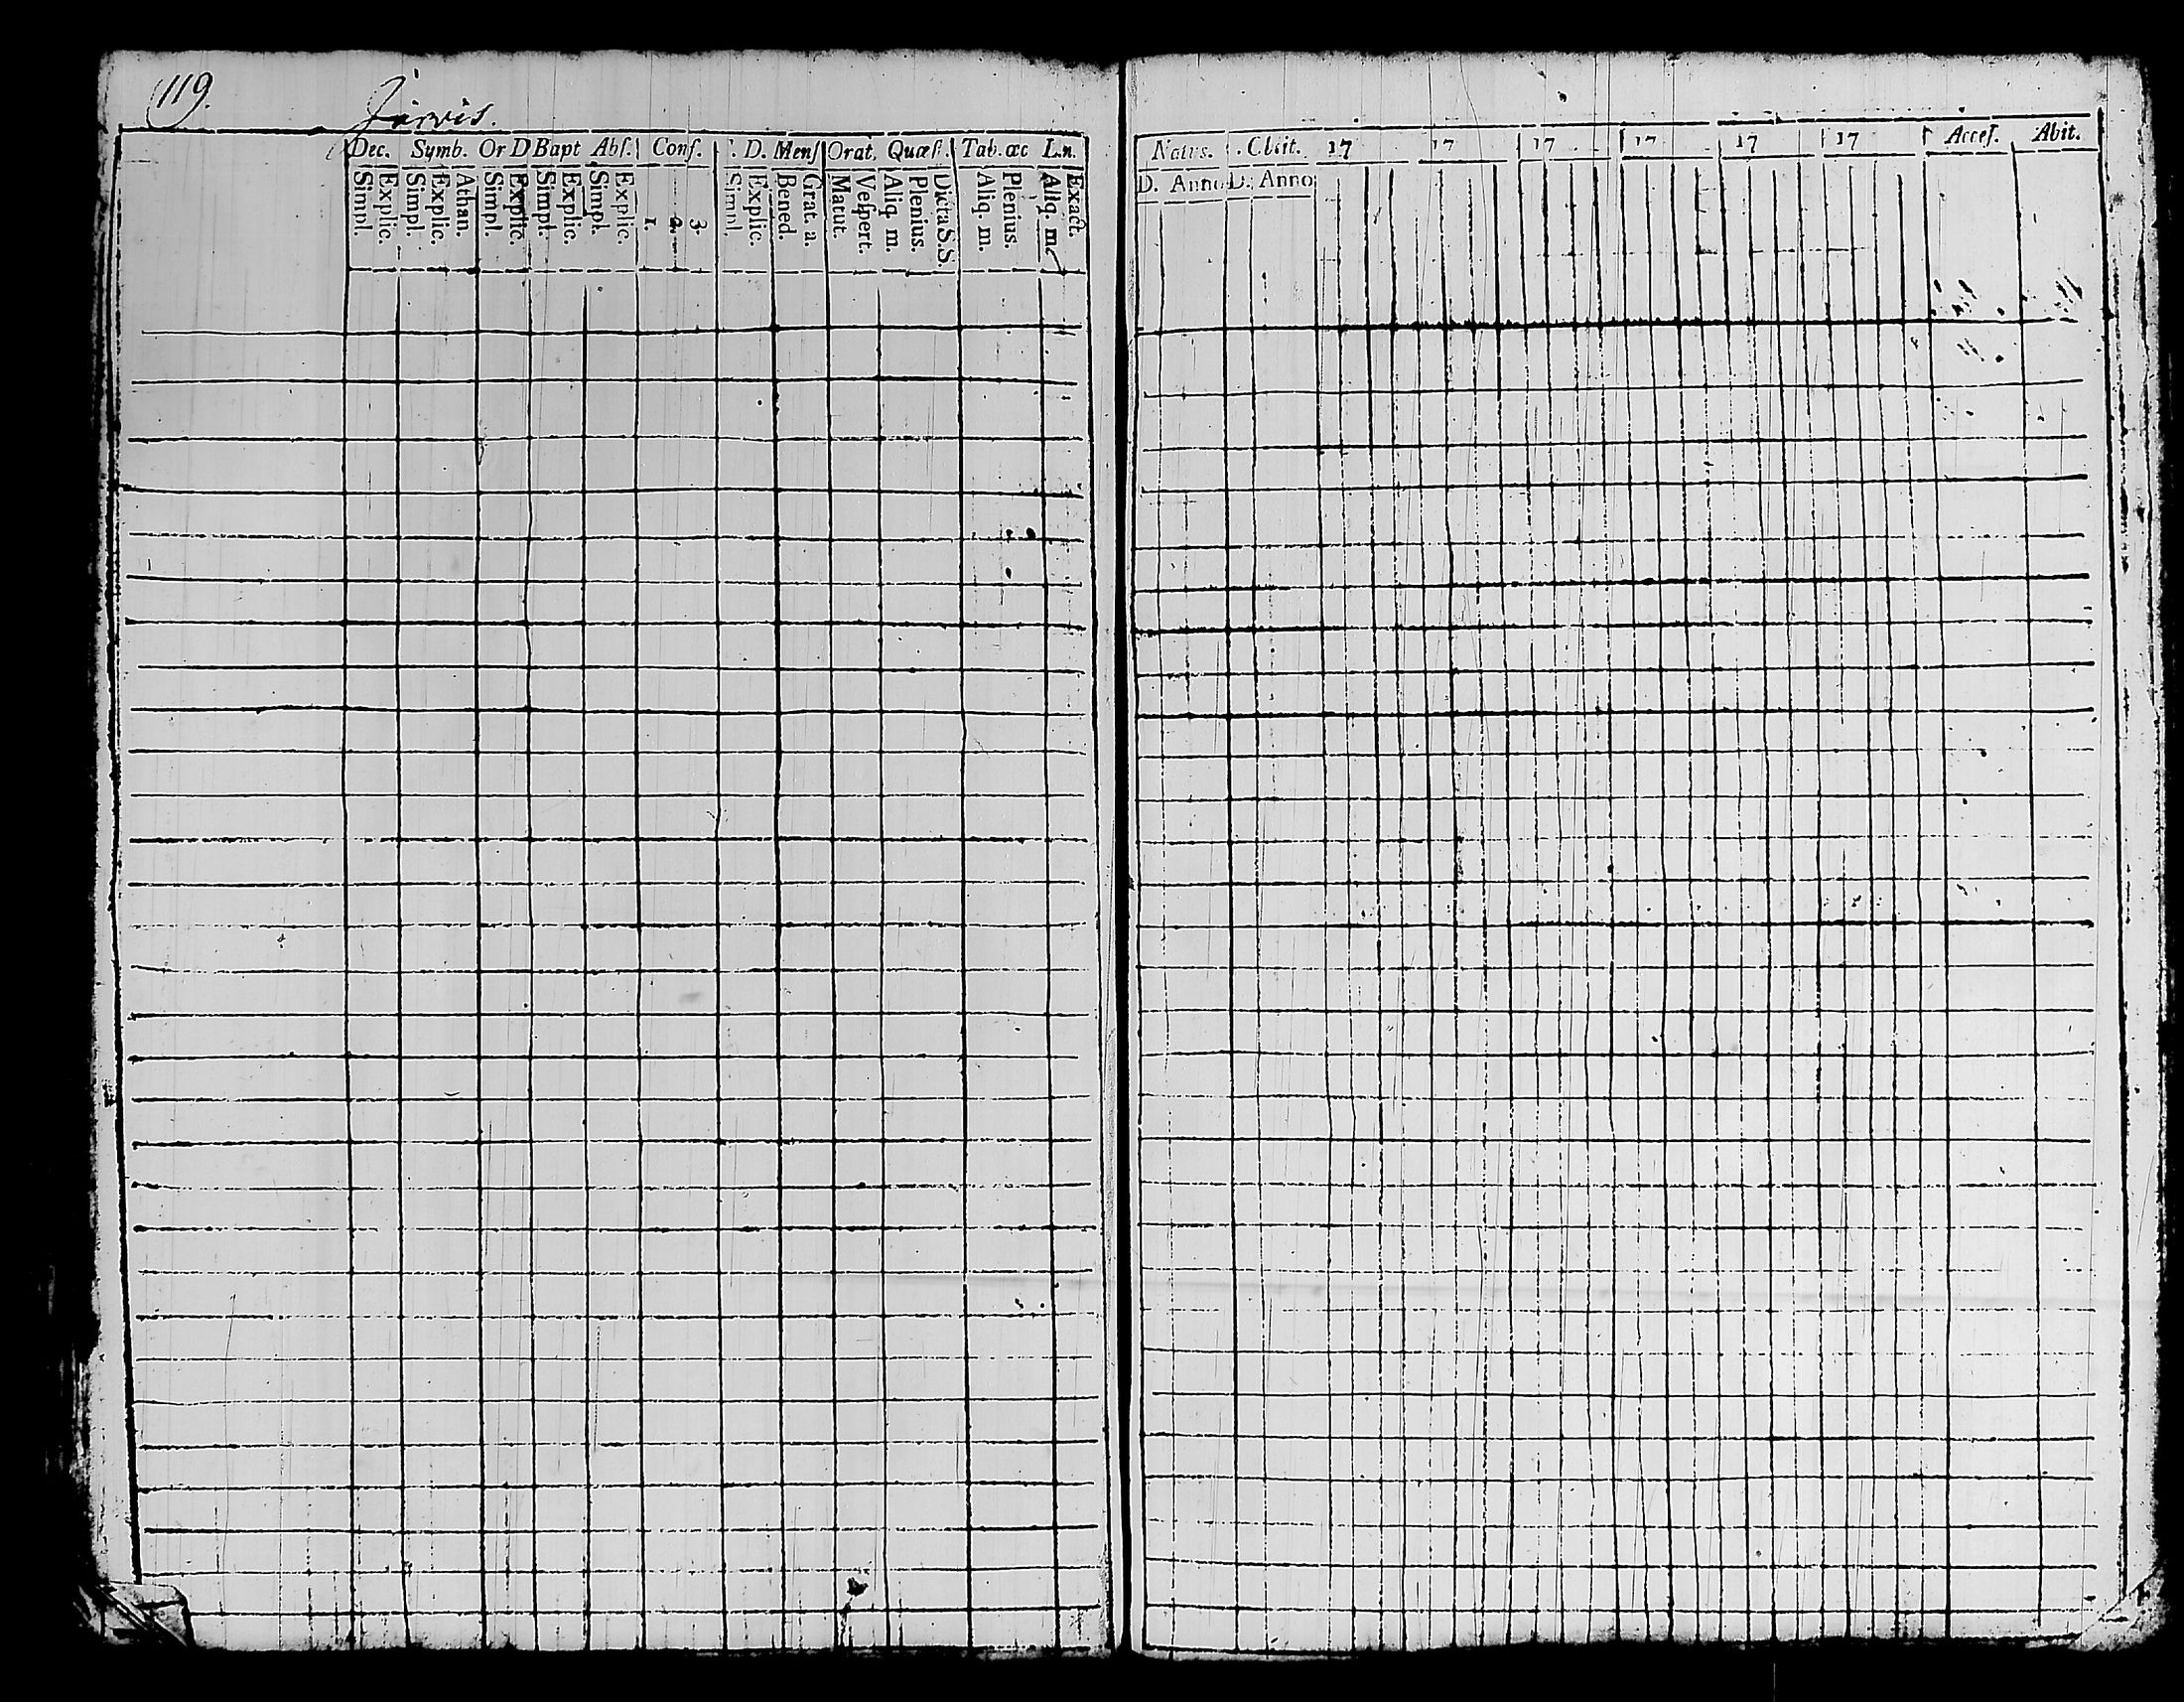 119.
Järvis.
Dec. Symb. Or D Bapt Abſ. Conf. D. Menſ Orat. Quæſt. Tab. œc L.n.
Simpl. Explic. Simpl. Explic. Athan. Simpl. Explic. Simpl. Explic. Simpl. Explic. 1. 2. 3. Simpl. Explic. Bened. Grat. a. Matut. Veſpert. Aliq. m. Plenius. Dicta.S.S. Aliq. m. Plenius. Aliq. m. Exact.
Natus. Obiit. 17 17 17 17 17 17 Acceſ. Abit.
D. Anno D. Anno